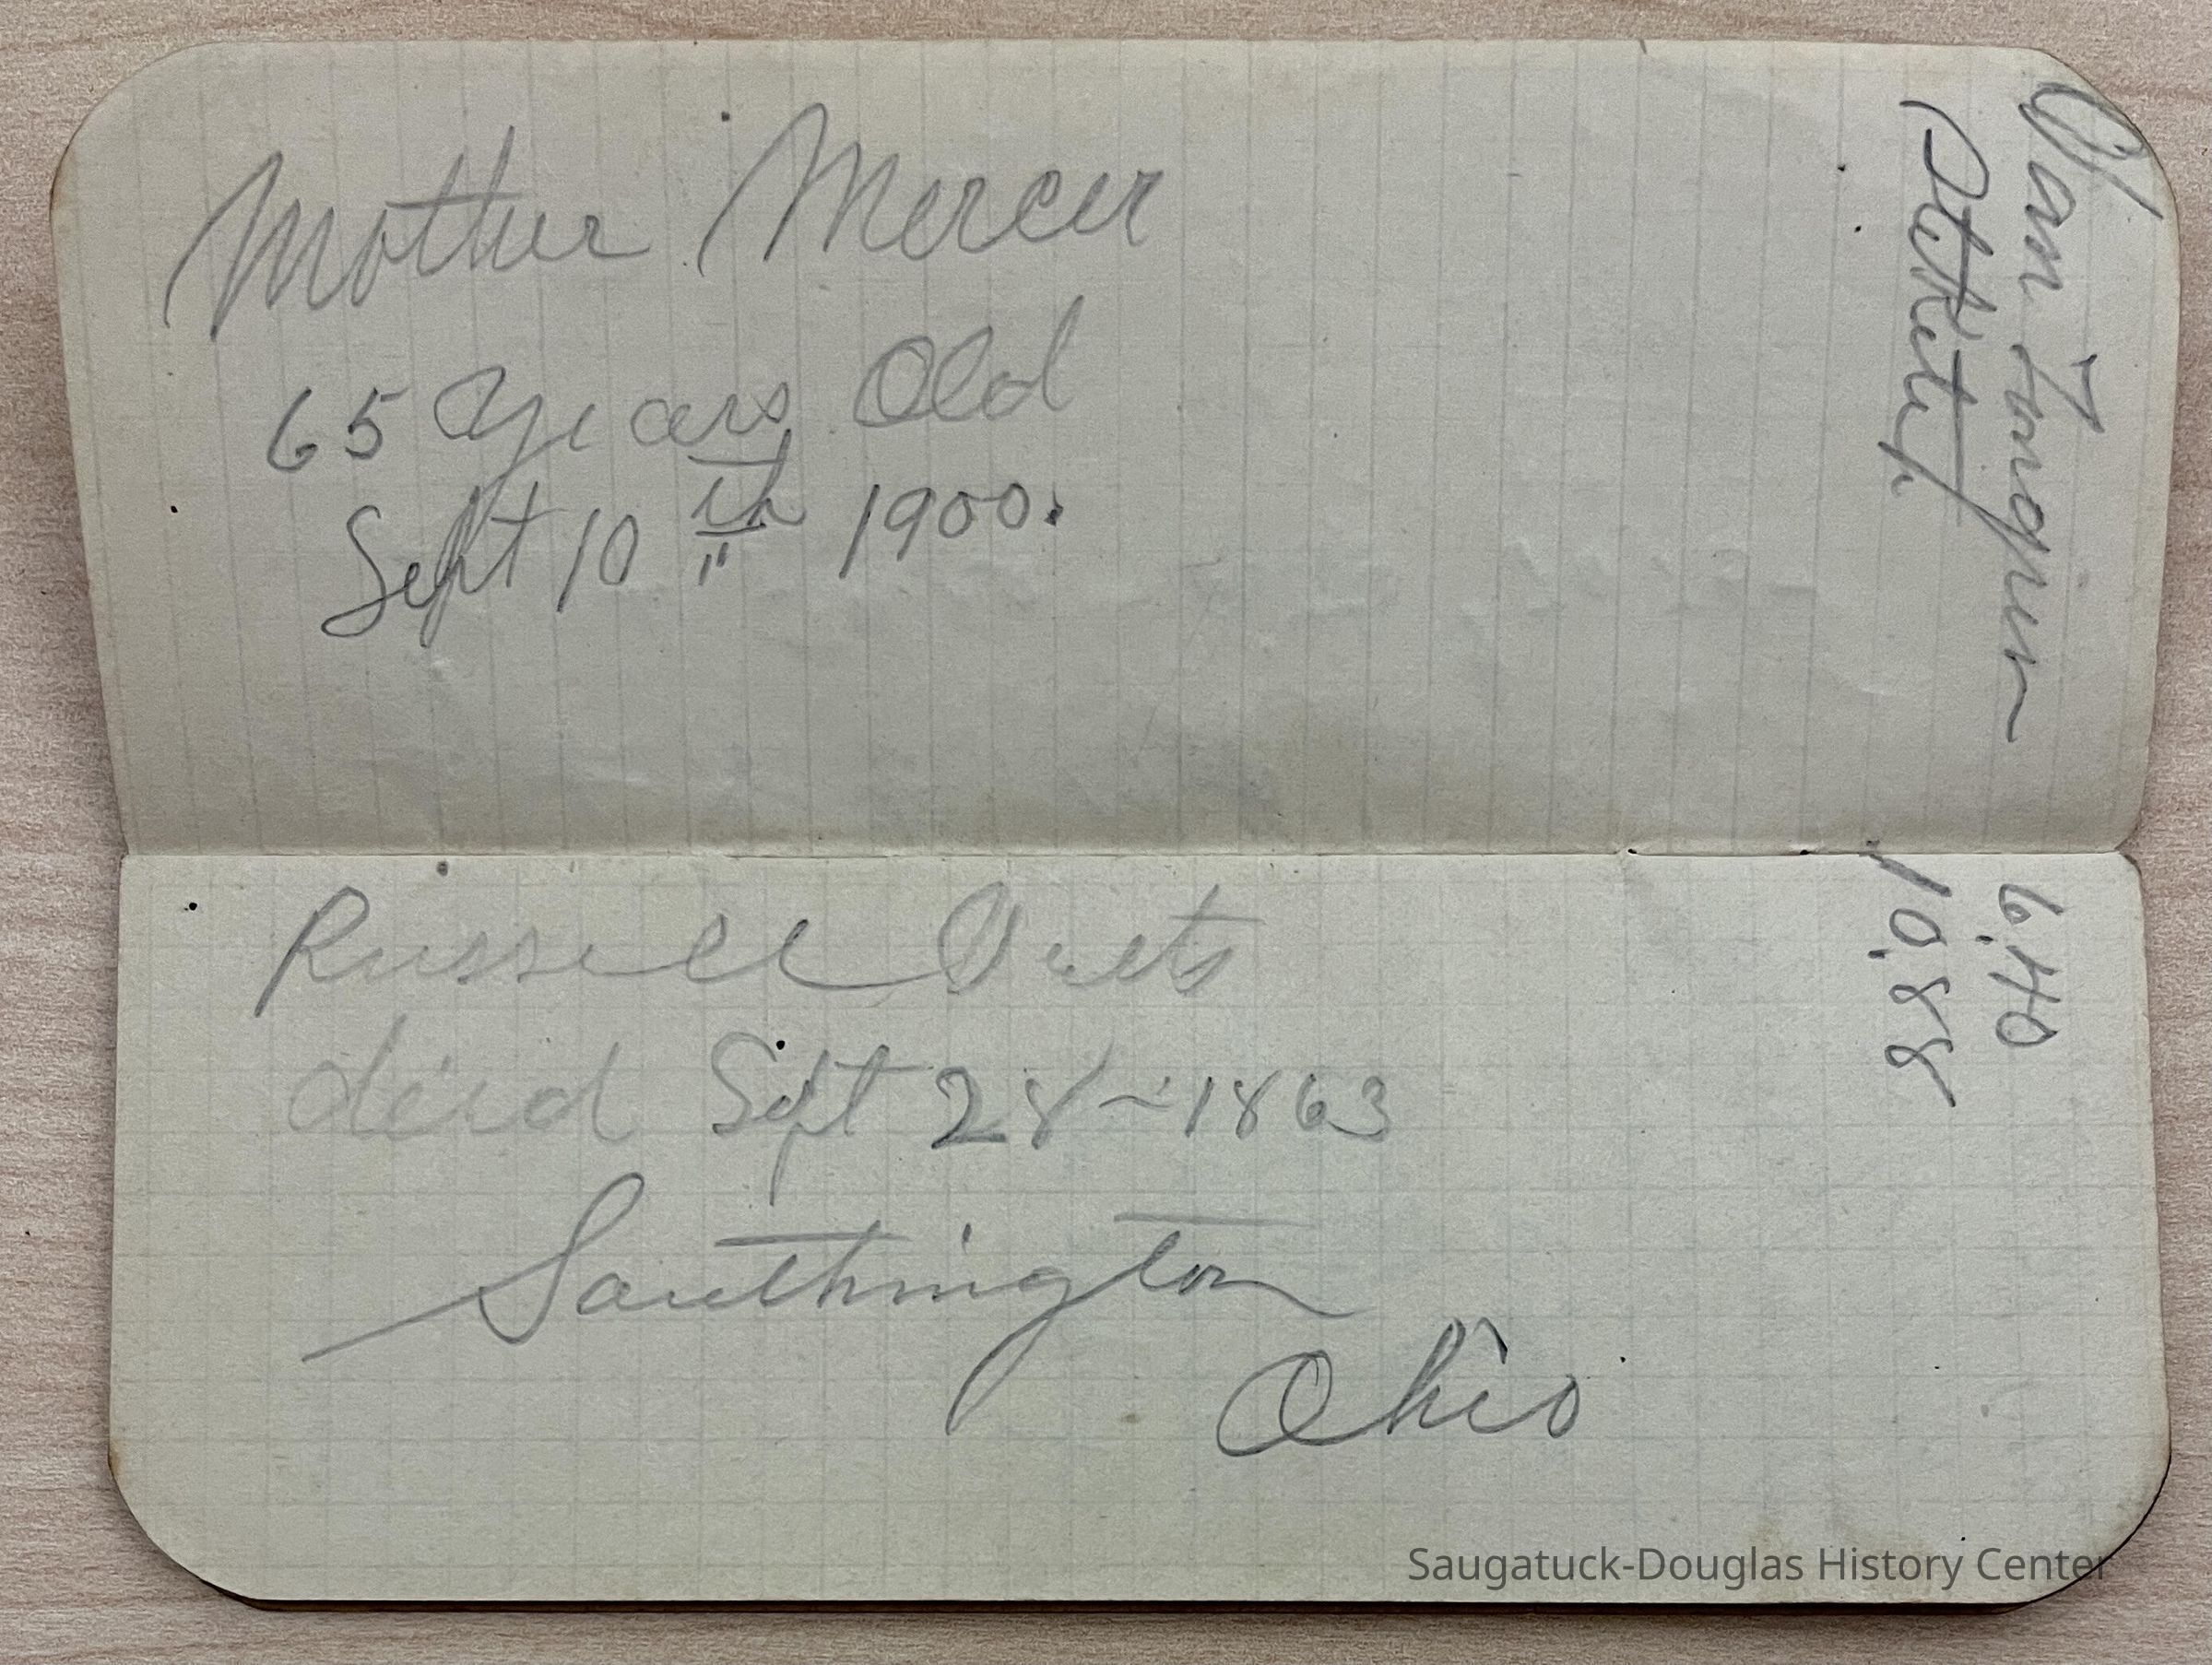 Mother Mercer
65 Years Old
Sept 10th 1900.
Van
6.40
10.88
Russell
died Sept 28 - 1863
Southington
Ohio
Saugatuck-Douglas History Center